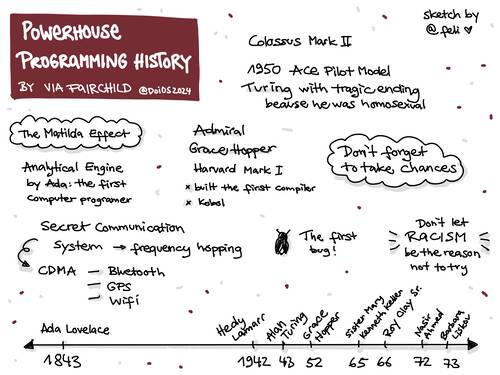 POWERHOUSE
PROGRAMMING HISTORY
BY VIA FAIRCHILD @DOIDS2024
sketch by
@.feli
Colossus Mark II
1950 Ace Pilot Model
Turing with tragic ending
beause he was homosexual
The Matilda Effect
Analytical Engine
by Ada: the first
computer programer
Admiral
Grace Hopper
Harvard Mark I
× built the first compiler
× Kobol
Don't forget
to take chances
Secret Communication
System → frequency hopping
CDMA — Bluetooth
— GPS
— Wifi
The first
bug!
Don't let
RACISM
be the reason
not to try
Ada Lovelace
Hedy
Lamarr
Alan
Turing
Grace
Hopper
Sister Mary
Kenneth Keller
Roy Clay Sr.
Nasir
Ahmed
Barbara
Liskov
1843 1942 43 52 65 66 72 73